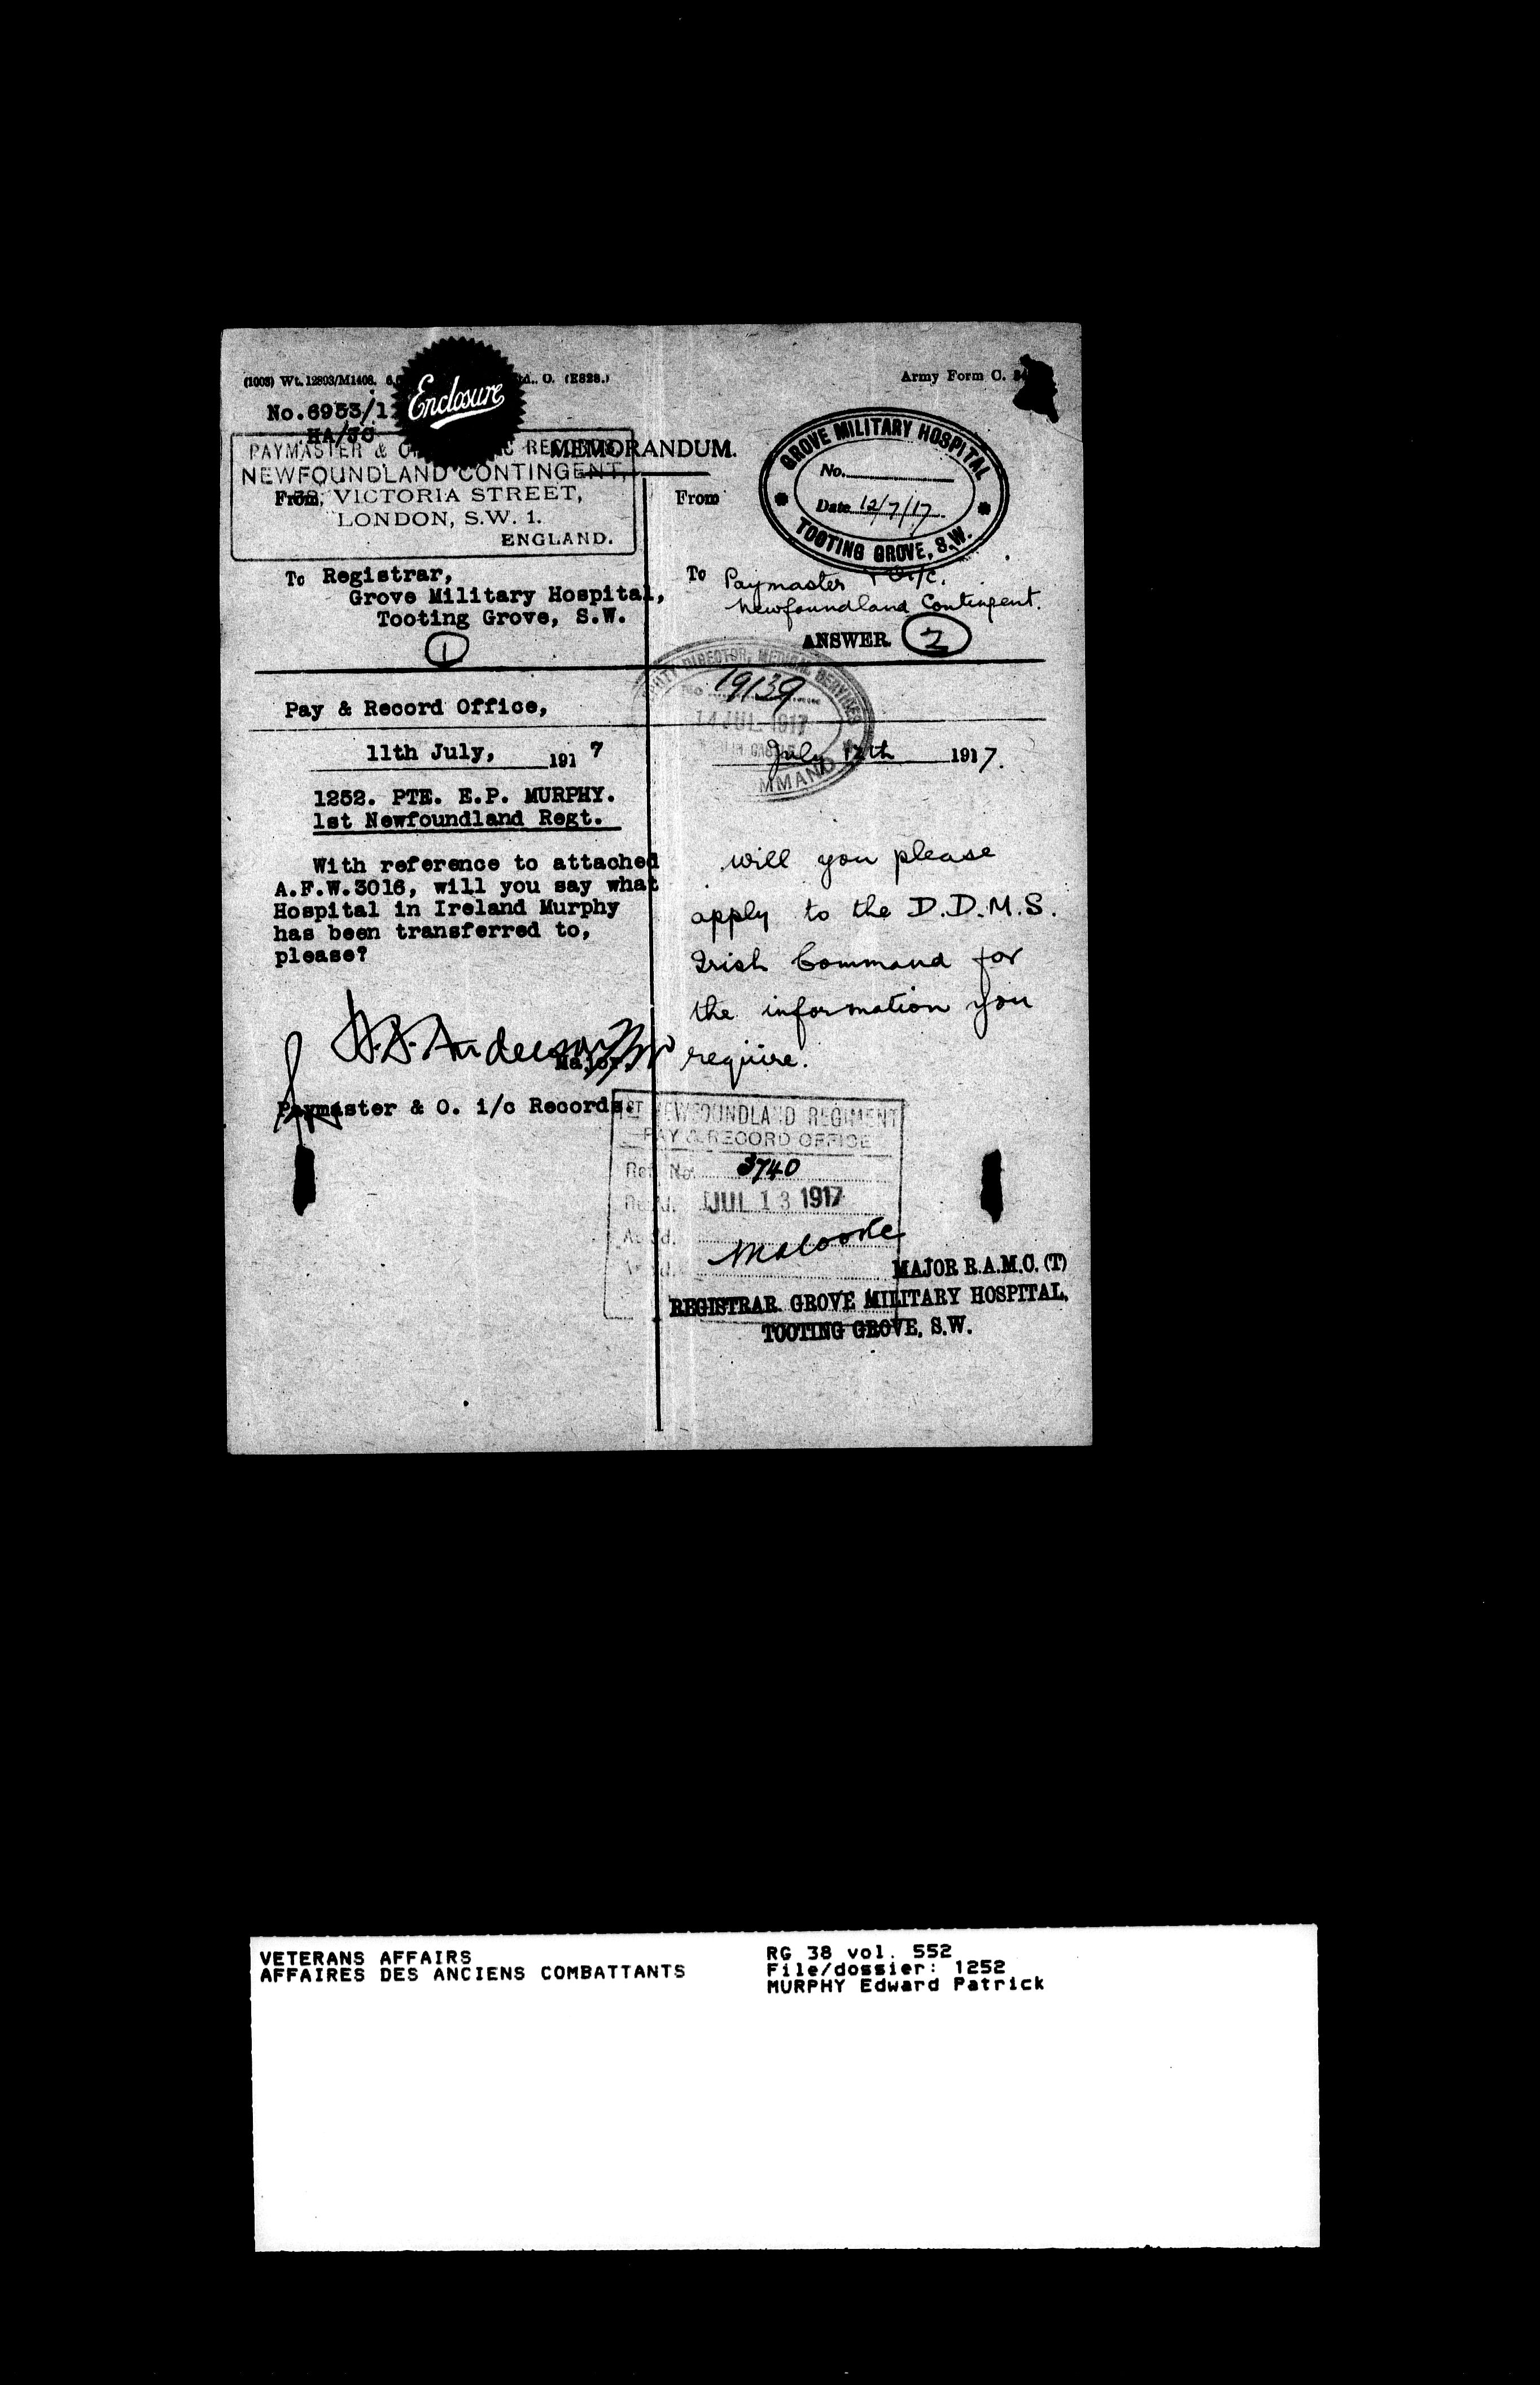 (1003) Wt. 12893/M1408.
O. (E828.)
Army Form C.
Enclosure
No.6953/1
HA/JC
MEMORANDUM.
PAYMASTER & O RECORDS
NEWFOUNDLAND CONTINGENT,
From, VICTORIA STREET,
LONDON, S.W. 1.
ENGLAND.
To Registrar,
Grove Military Hospital,
Tooting Grove, S.W.
1
From
GROVE MILITARY HOSPITAL
No.
Date 12/7/17.
TOOTING GROVE, S.W.
To Paymaster
Newfoundland Contingent.
ANSWER. 2
DIRECTOR, MEDICAL SERVICES
No 19139
14 JUL 1917
Pay & Record Office,
11th July, 1917
1252. PTE. E.P. MURPHY.
1st Newfoundland Regt.
With reference to attached
A.F.W.3016, will you say what
Hospital in Ireland Murphy
has been transferred to,
please?
Major.
Paymaster & O. i/c Records.
July 12th 1917.
will you please
apply to the D.D.M.S.
Irish Command for
the information you
require.
1ST NEWFOUNDLAND REGIMENT
PAY & RECORD OFFICE
Ref No. 3740
JUL 13 1917
MAJOR R.A.M.C. (T)
REGISTRAR. GROVE MILITARY HOSPITAL,
TOOTING GROVE, S.W.
VETERANS AFFAIRS
AFFAIRES DES ANCIENS COMBATTANTS
RG 38 vol. 552
File/dossier: 1252
MURPHY Edward Patrick